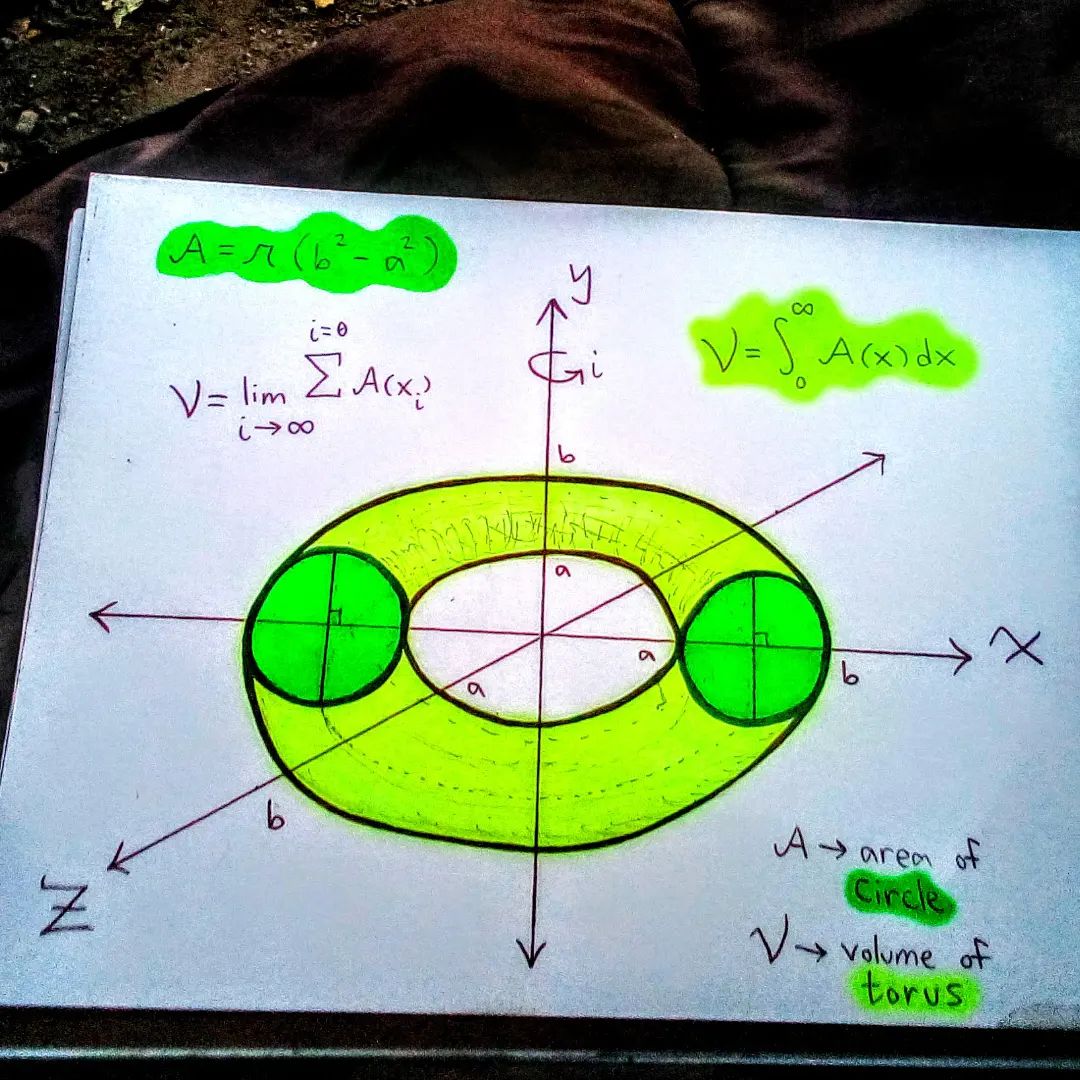 A = π (b² - a²)
y
i=0
V = lim Σ A(xᵢ)
i→∞
V = ∫₀^∞ A(x) dx
i
b
a
x
a
b
a
b
Z
A → area of
circle
V → volume of
torus